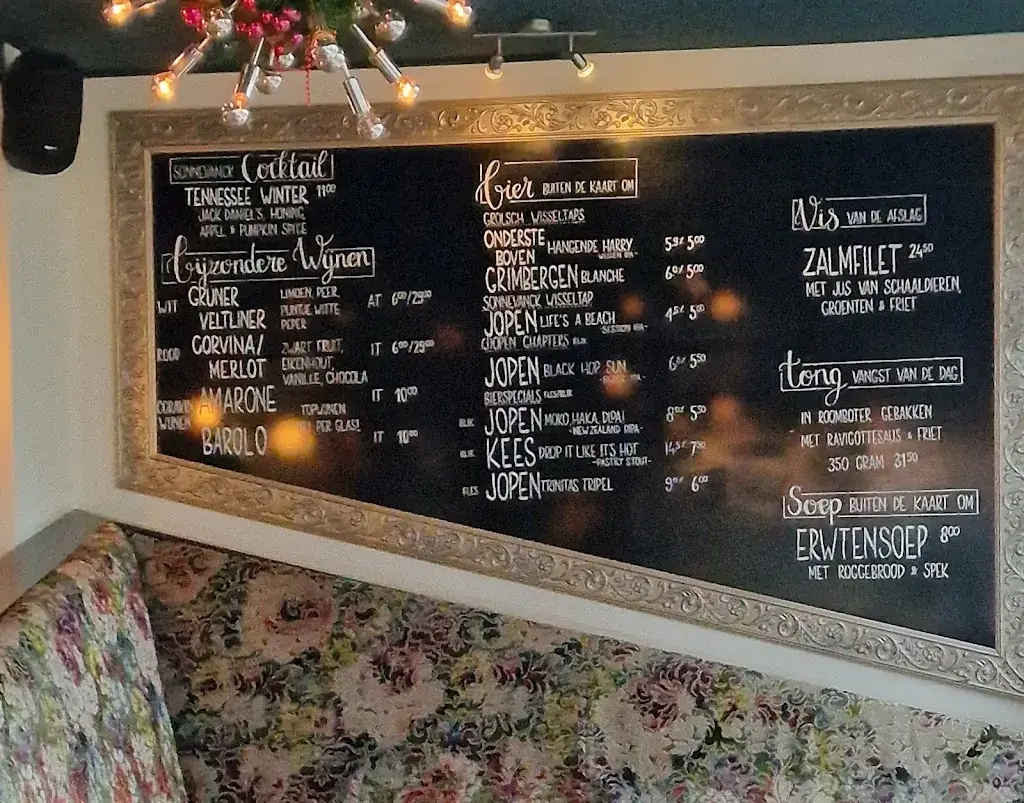 SONNEVANCK Cocktail
TENNESSEE WINTER 11⁰⁰
JACK DANIEL'S, HONING,
APPEL & PUMPKIN SPICE
Bijzondere Wijnen
WIT GRÜNER VELTLINER LIMOEN, PEER, PUNTJE WITTE PEPER AT 6⁰⁰/29⁰⁰
ROOD CORVINA/ MERLOT ZWART FRUIT, EIKENHOUT, VANILLE, CHOCOLA IT 6⁰⁰/29⁰⁰
CORAVIN WIJNEN AMARONE TOPWIJNEN IT 10⁰⁰
BAROLO PER GLAS! IT 10⁰⁰
Bier BUITEN DE KAART OM
GROLSCH WISSELTAPS
ONDERSTE BOVEN HANGENDE HARRY 5.9% 5⁰⁰
GRIMBERGEN BLANCHE 6.0% 5⁰⁰
SONNEVANCK WISSELTAP
JOPEN LIFE'S A BEACH -SESSION IPA- 4.5% 5⁰⁰
JOPEN CHAPTERS BLIK
JOPEN BLACK HOP SUN 5⁵⁰
BIERSPECIALS FLES/BLIK
BLIK JOPEN MOKO HAKA DIPA! -NEW ZEALAND DIPA- 8.0% 5⁵⁰
BLIK KEES DROP IT LIKE IT'S HOT -PASTRY STOUT-
FLES JOPEN TRINITAS TRIPEL 6⁰⁰
Vis VAN DE AFSLAG
ZALMFILET 24⁵⁰
MET JUS VAN SCHAALDIEREN,
GROENTEN & FRIET
tong VANGST VAN DE DAG
IN ROOMBOTER GEBAKKEN
MET RAVIGOTTESAUS & FRIET
350 GRAM 31⁵⁰
Soep BUITEN DE KAART OM
ERWTENSOEP 8⁰⁰
MET ROGGEBROOD & SPEK